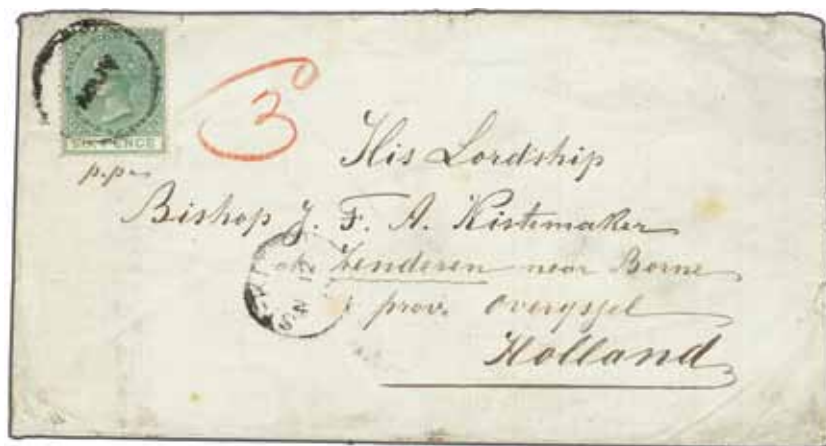 SIX PENCE
3
p.p.
His Lordship
Bishop J. F. A. Kistemaker
Zenderen near Borne
prov. Overyssel
Holland